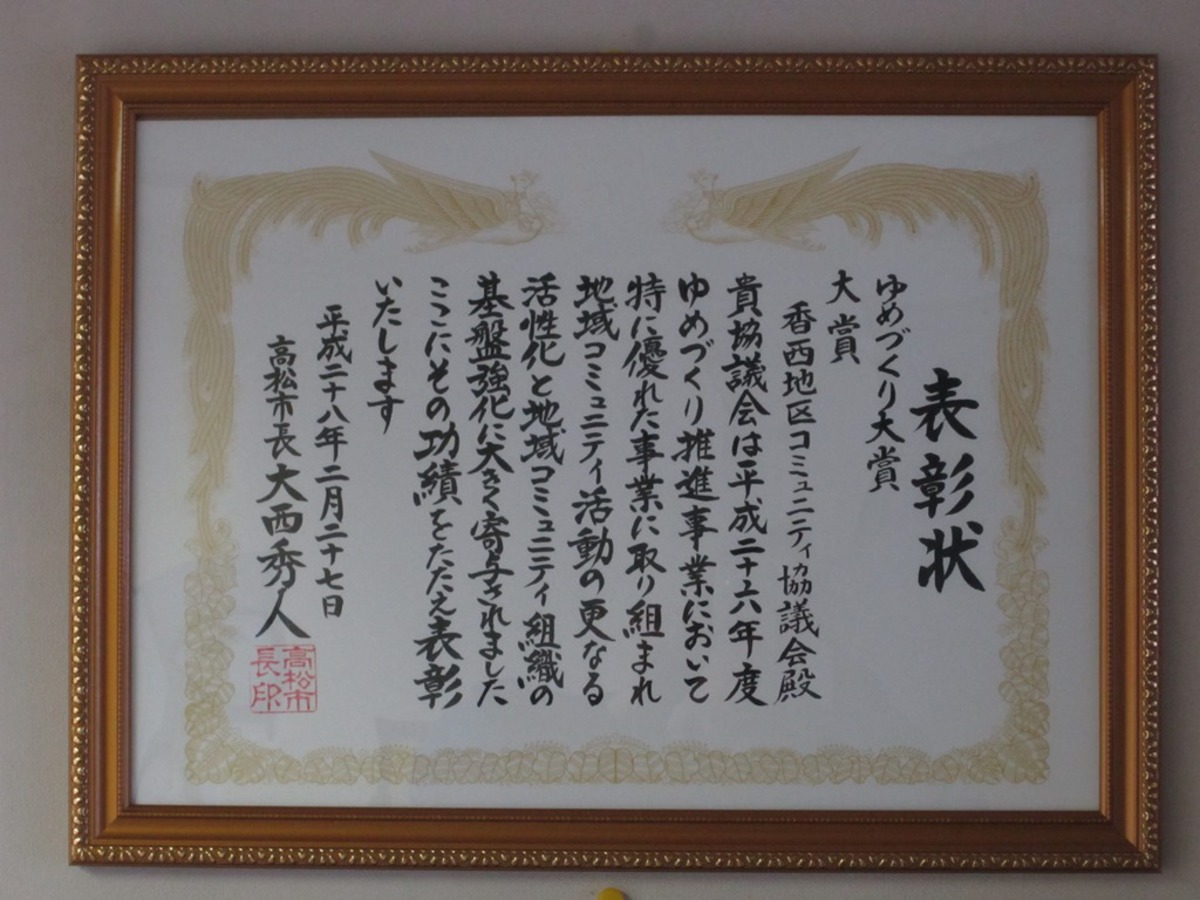 表彰状
ゆめづくり大賞
大賞
香西地区コミュニティ協議会殿
貴協議会は平成二十六年度
ゆめづくり推進事業において
特に優れた事業に取り組まれ
地域コミュニティ活動の更なる
活性化と地域コミュニティ組織の
基盤強化に大きく寄与されました
ここにその功績をたたえ表彰
いたします
平成二十八年二月二十七日
高松市長大西秀人
高松市
長印